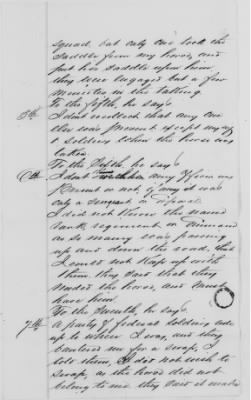 squad, but only one took the
saddle from my horse, and
put his saddle upon him
they were engaged but a few
minutes in the taking
To the fifth, he says
5th. I do not recollect that any one
else was present except myself
& soldiers when the horse was
taken.
To the Sixth, he says
6th I don't any officer was
Present or not, if any it was
only a sergeant or corporal
I did not Know the name
rank regiment or Command
as so many was passing
up and down the road, that
I could not Keep up with
them. they said that they
needed the horse, and must
have him.
To the Seventh, he says
7th. A party of federal soldiers rode
up to where I was, and they
bantered me for a swap, I
told them, I did not wish to
swap, as the horse did not
belong to me they said it made